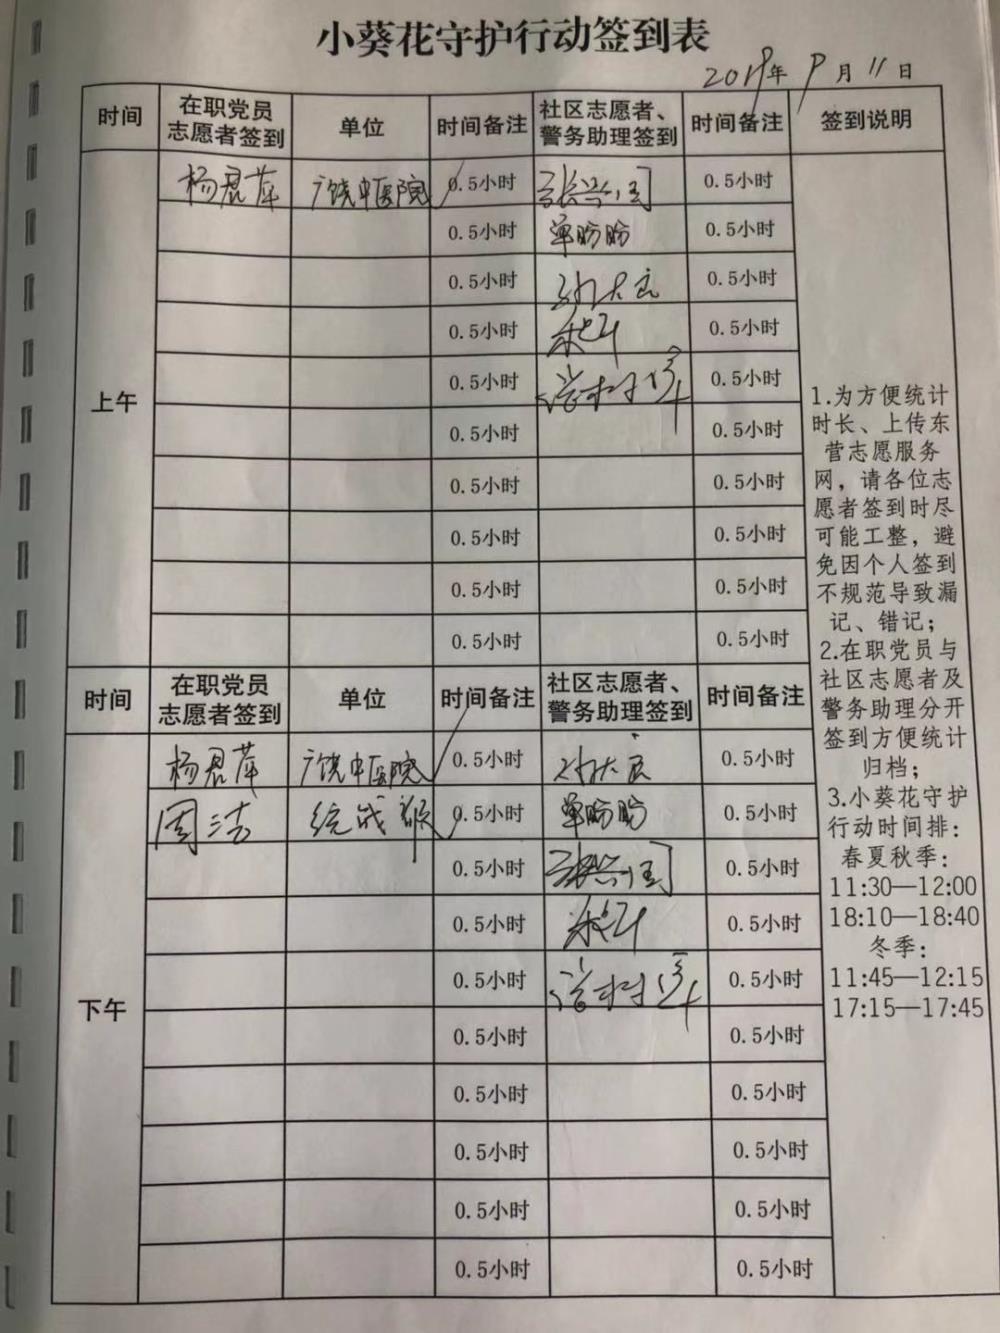 小葵花守护行动签到表
2019年9月11日
时间 在职党员志愿者签到 单位 时间备注 社区志愿者、警务助理签到 时间备注 签到说明
上午
杨君萍 广饶中医院 0.5小时 0.5小时
0.5小时 单盼盼 0.5小时
0.5小时 0.5小时
0.5小时 0.5小时
0.5小时 0.5小时
0.5小时 0.5小时
0.5小时 0.5小时
0.5小时 0.5小时
0.5小时 0.5小时
0.5小时 0.5小时
时间 在职党员志愿者签到 单位 时间备注 社区志愿者、警务助理签到 时间备注
下午
杨君萍 广饶中医院 0.5小时 0.5小时
周洁 统战部 0.5小时 单盼盼 0.5小时
0.5小时 0.5小时
0.5小时 0.5小时
0.5小时 0.5小时
0.5小时 0.5小时
0.5小时 0.5小时
0.5小时 0.5小时
0.5小时 0.5小时
0.5小时 0.5小时
1.为方便统计
时长、上传东
营志愿服务
网，请各位志
愿者签到时尽
可能工整，避
免因个人签到
不规范导致漏
记、错记；
2.在职党员与
社区志愿者及
警务助理分开
签到方便统计
归档；
3.小葵花守护
行动时间排：
春夏秋季：
11:30—12:00
18:10—18:40
冬季：
11:45—12:15
17:15—17:45